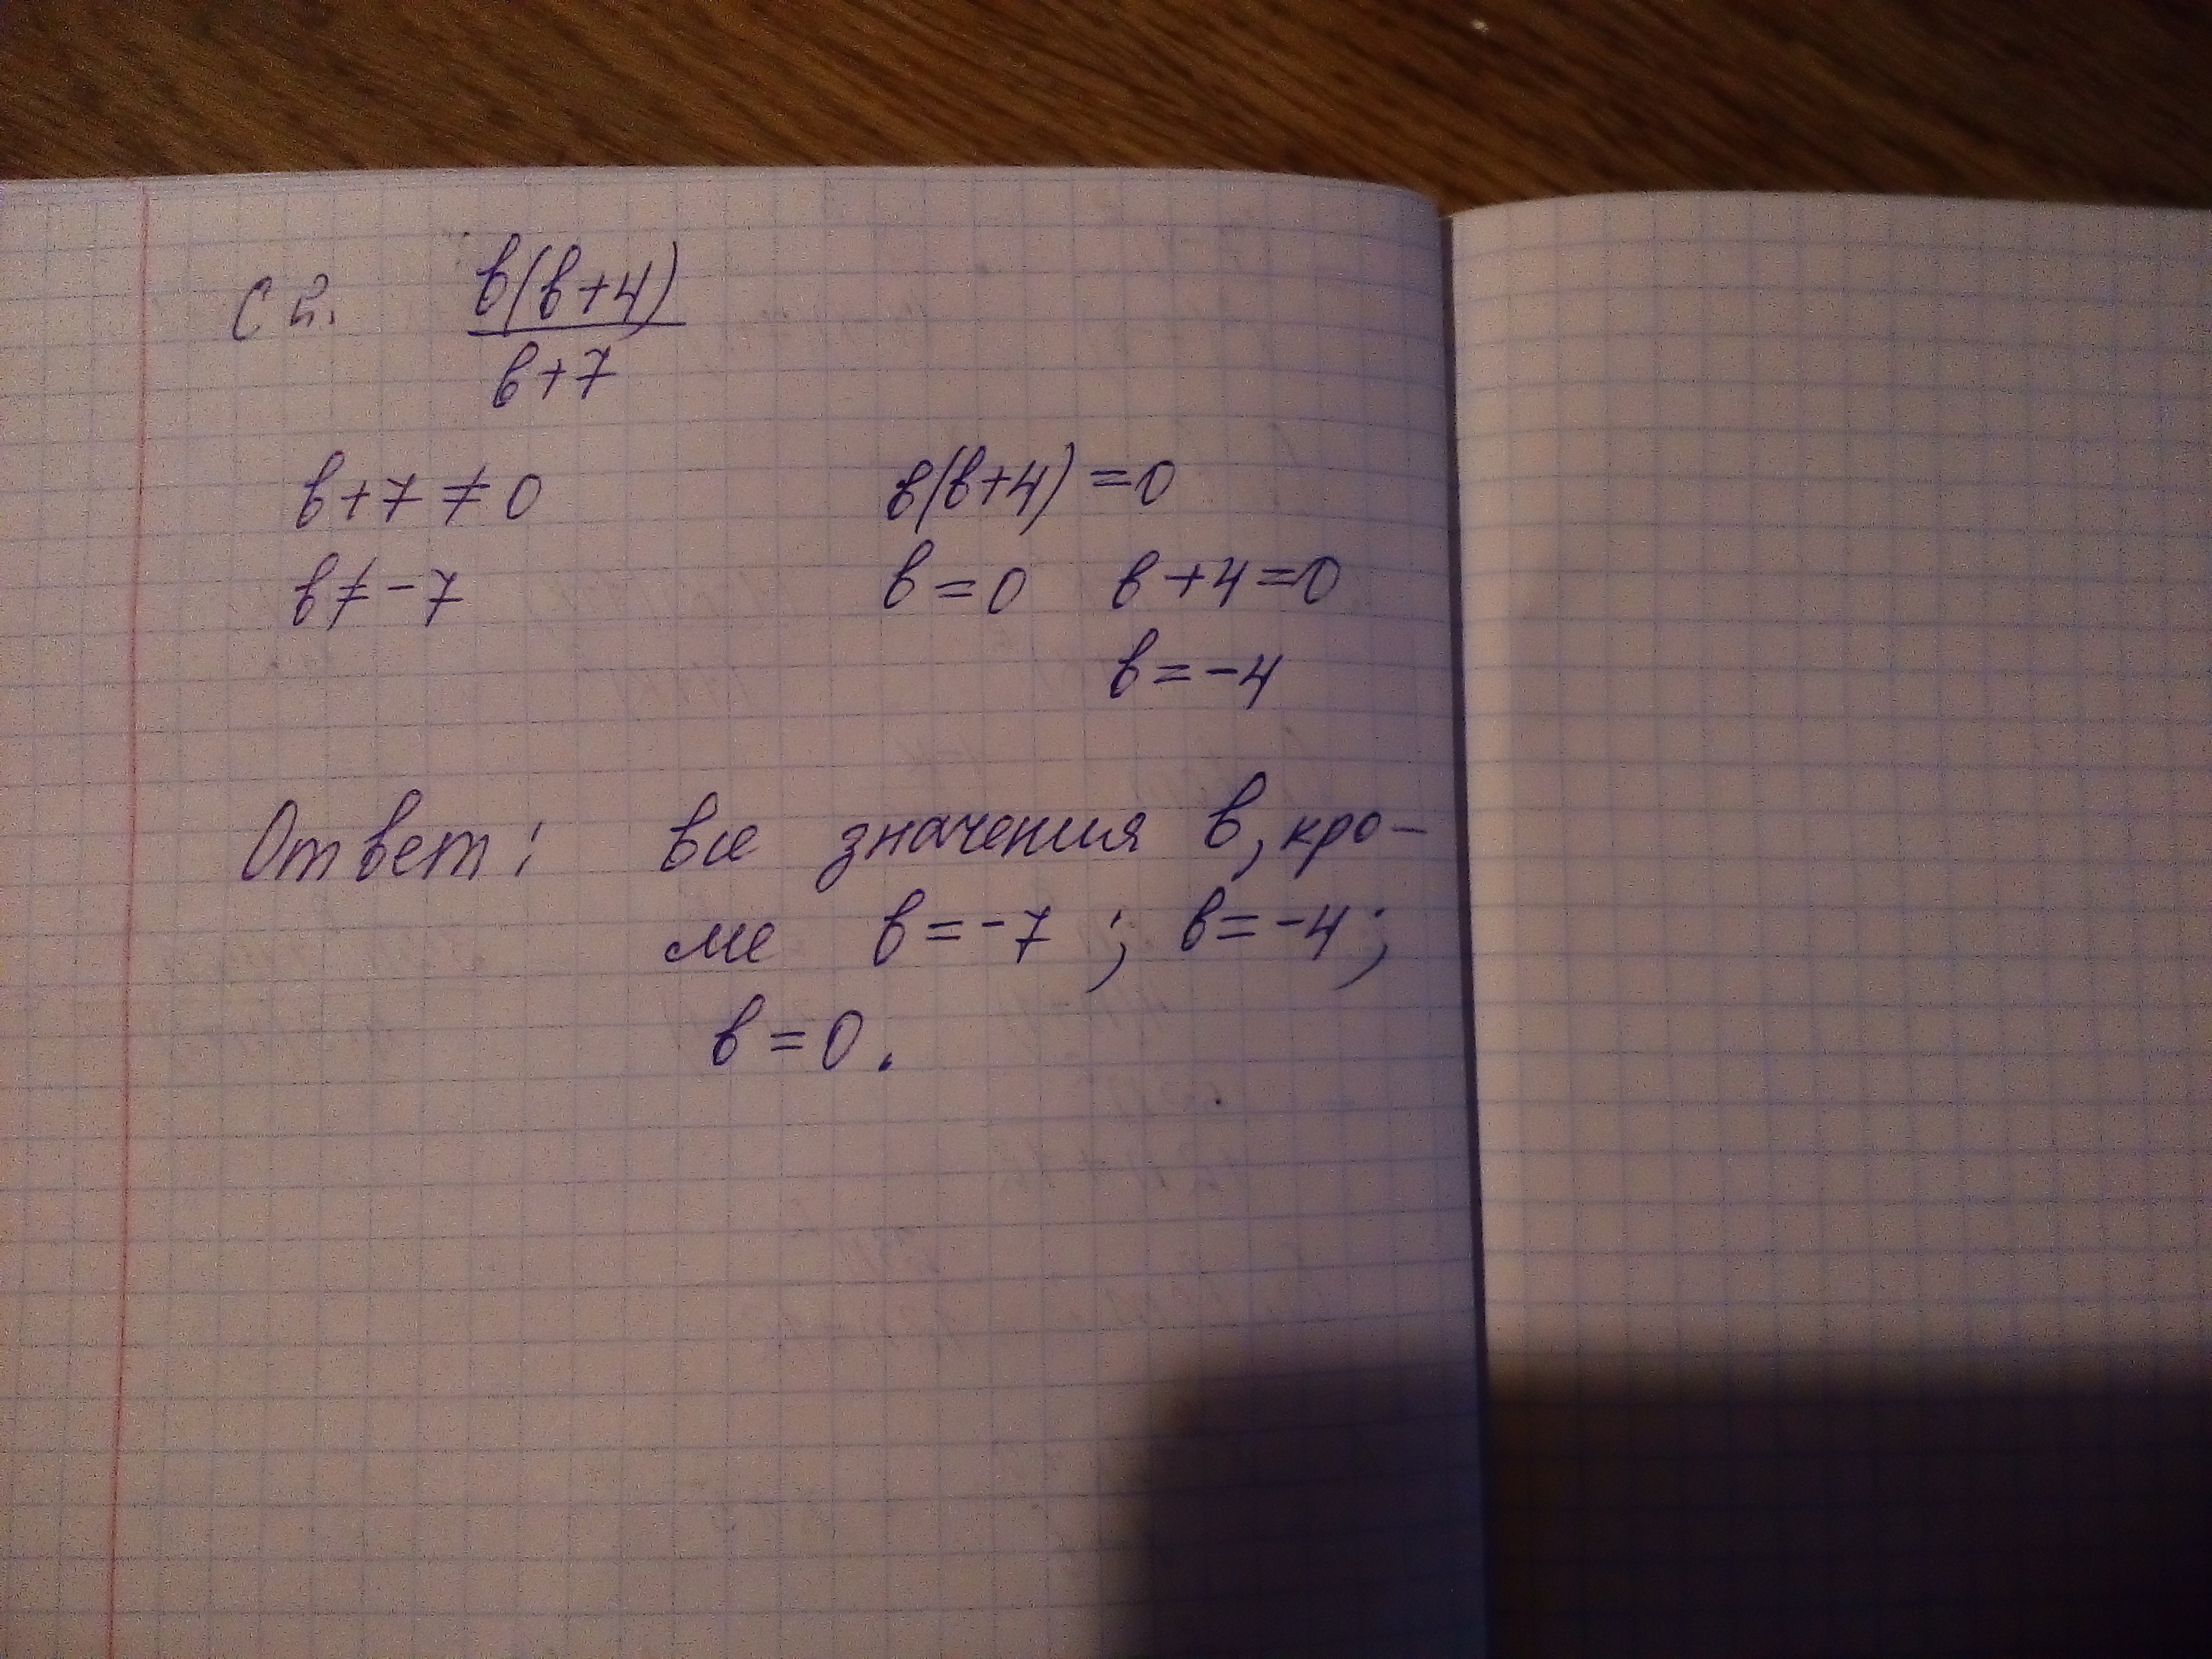 С 2. в(в+4)
в+7
в+7 ≠ 0
в ≠ -7
в(в+4) = 0
в = 0 в+4=0
в = -4
Ответ: все значения в, кро-
ме в = -7 ; в = -4 ;
в = 0.